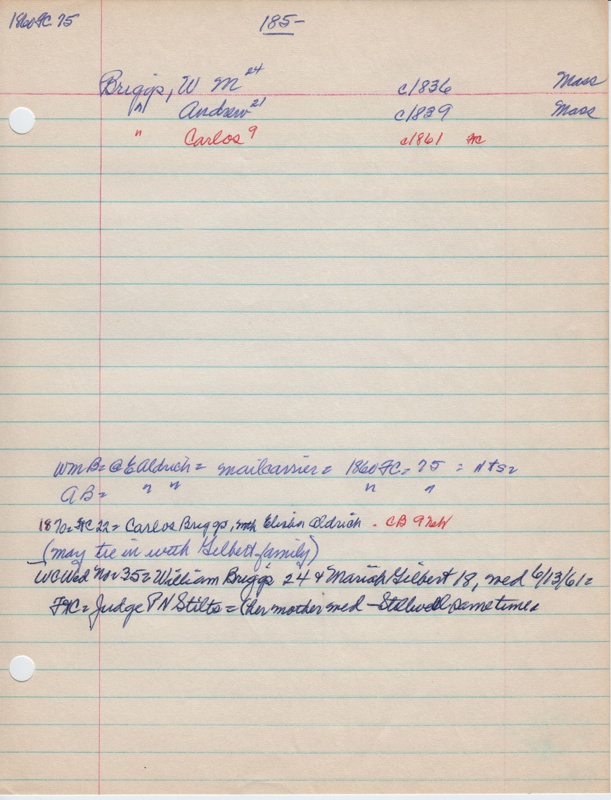 1860 FC 75
185-
Briggs, W M 24 c1836 Mass
" Andrew 21 c1839 Mass
" Carlos 9 c1861
Wm B= @ E Aldrich = mailcarrier = 1860 FC = 75 =
AB= " " " "
1870= FC 22= Carlos Briggs, with Elisha Aldrich - CB 9
(may tie in with Gilbert family)
WC Wed No=35= William Briggs 24 & Mariah Gilbert 18, wed 6/13/61=
FC= Judge PN Stilts= (her mother wed - Stillwell sometime.